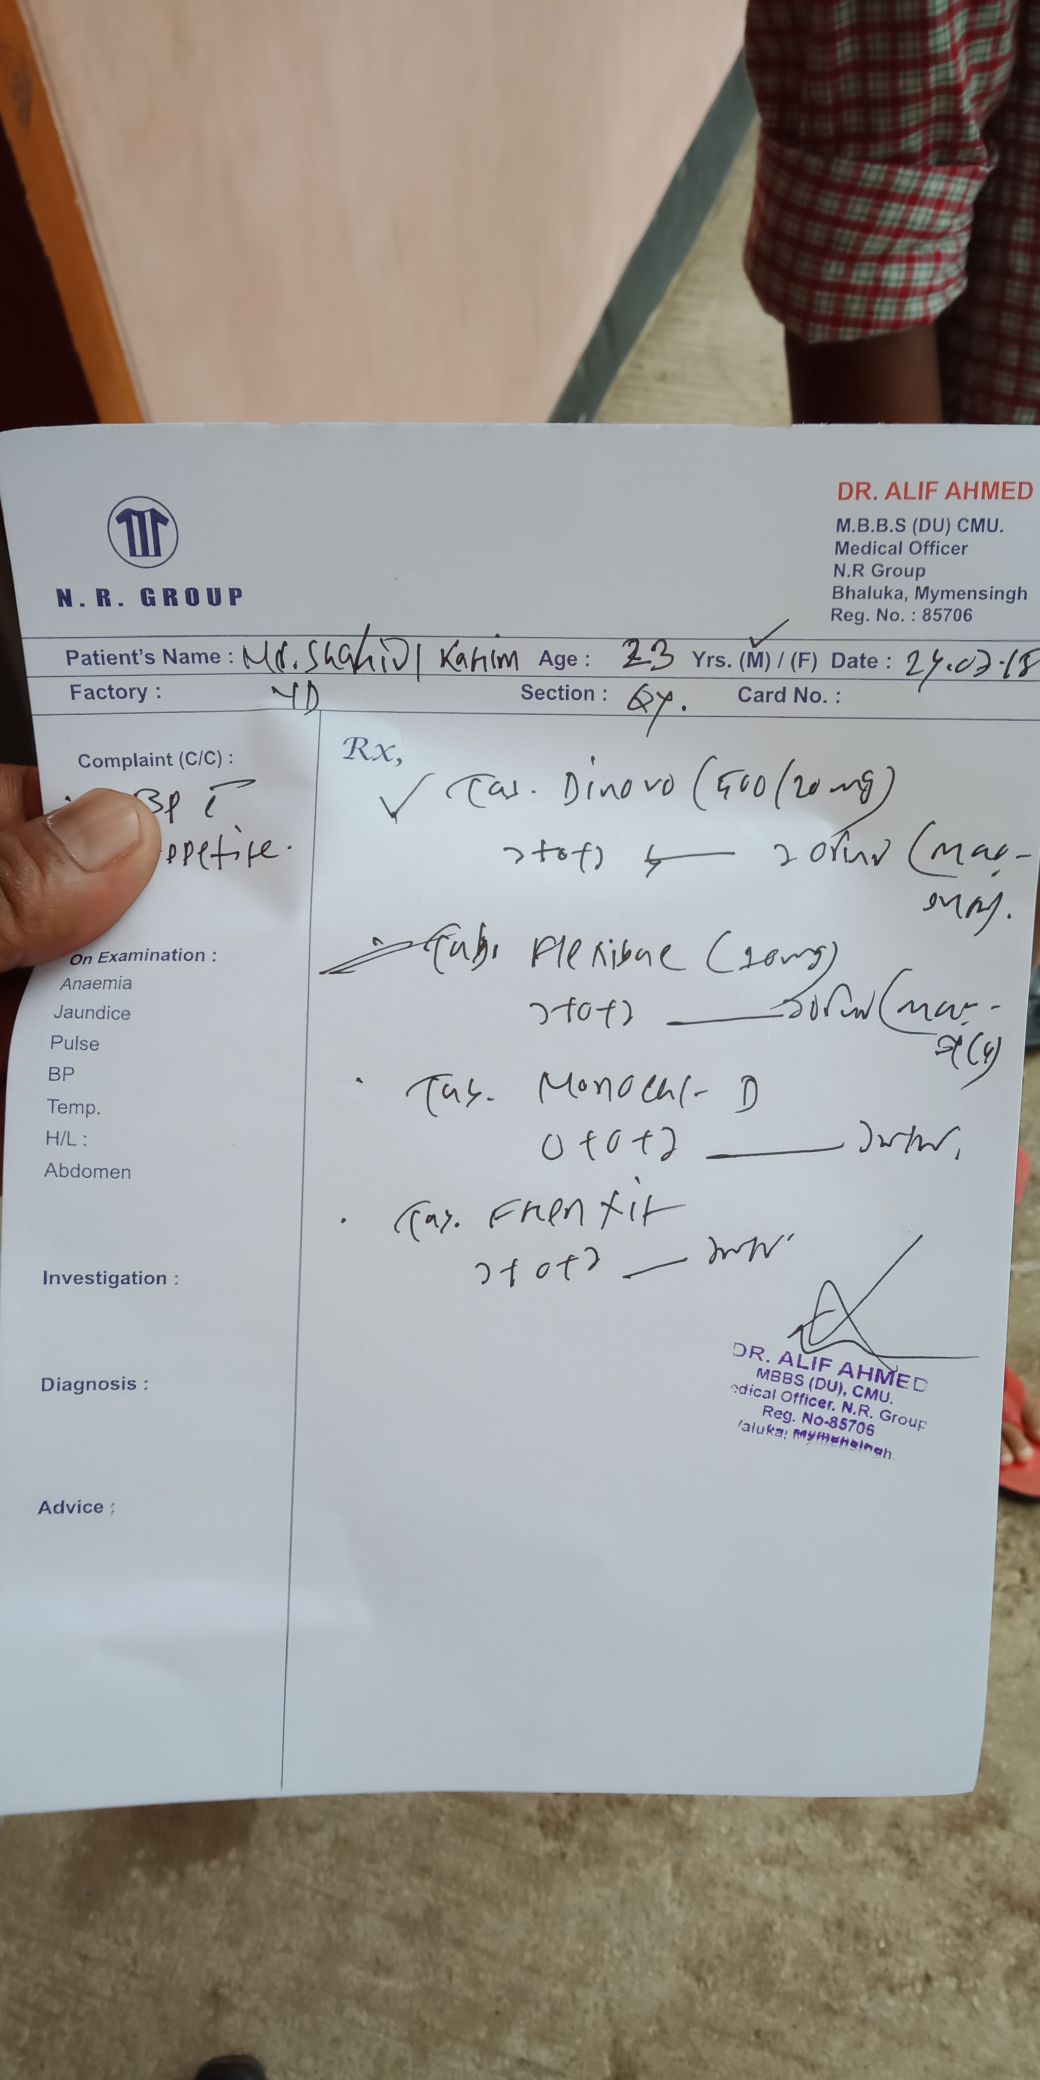 DR. ALIF AHMED
M.B.B.S (DU) CMU.
Medical Officer
N.R Group
Bhaluka, Mymensingh
Reg. No. : 85706
N. R. GROUP
Patient's Name : Mr. Shahidul Karim Age : 23 Yrs. (M) / (F) Date :
Factory : YD Section : Card No. :
Complaint (C/C) :
BP c
ppetite.
On Examination :
Anaemia
Jaundice
Pulse
BP
Temp.
H/L :
Abdomen
Investigation :
Diagnosis :
Advice :
Rx,
Tab. Dinovo (500/20 mg)
১+০+১ ১০ দিন
Tab. Flexibac (10mg)
১+০+১ ১০ দিন
Tab. Monocal-D
০+০+১
Tab. Frenxit
১+০+১
DR. ALIF AHMED
MBBS (DU), CMU.
edical Officer. N.R. Group
Reg. No-85706
aluka, Mymensingh